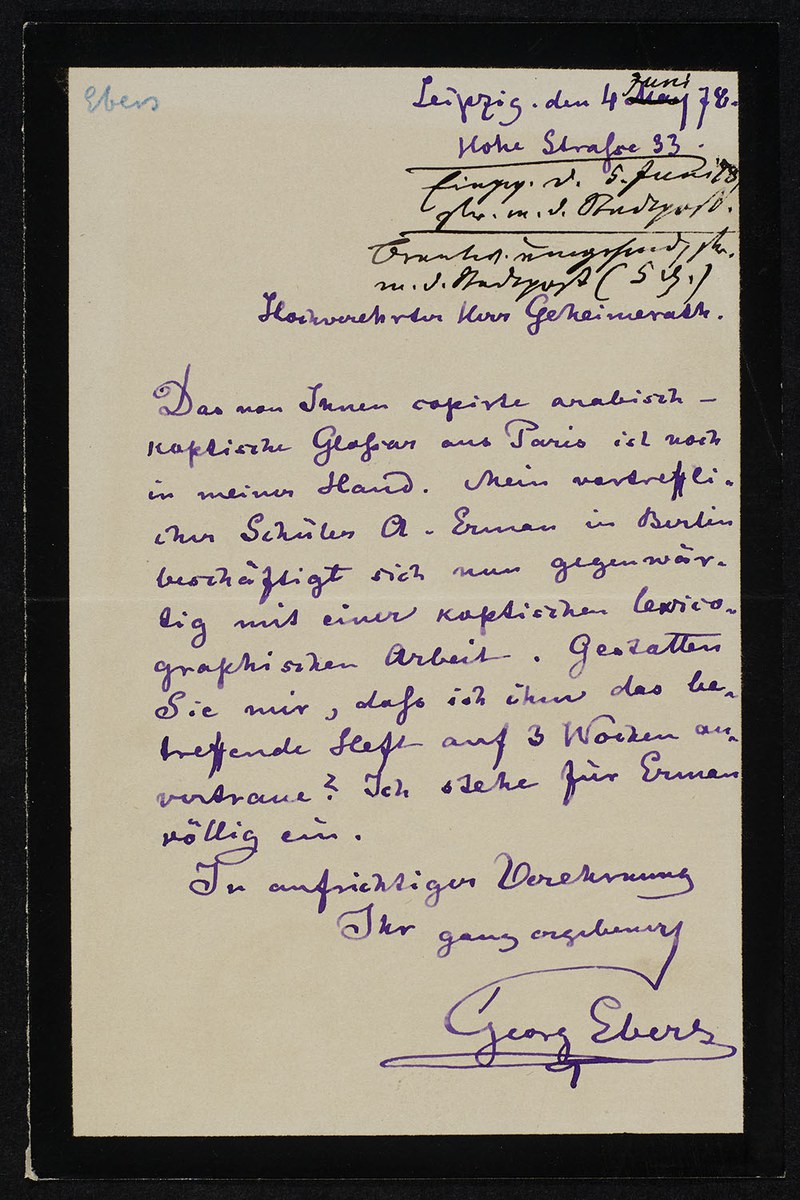 Ebers
Leipzig. den 4 Juni May 78.
Hohe Straße 33.
d. 5. Juni 78
m. d. Stadtpost.
m. d. Stadtpost (5
Hochverehrter Herr Geheimerath.
Das von Ihnen copirte arabisch-
koptische Gloßar aus Paris ist noch
in meiner Hand. Mein vortreffli-
cher Schüler A. Erman in Berlin
beschäftigt sich nun gegenwär-
tig mit einer koptischen lexico-
graphischen Arbeit. Gestatten
Sie mir, daß ich ihm das be-
treffende Heft auf 3 Wochen an-
vertraue? Ich stehe für Erman
völlig ein.
In aufrichtiger Verehrung
Ihr ganz ergebenster
Georg Ebers